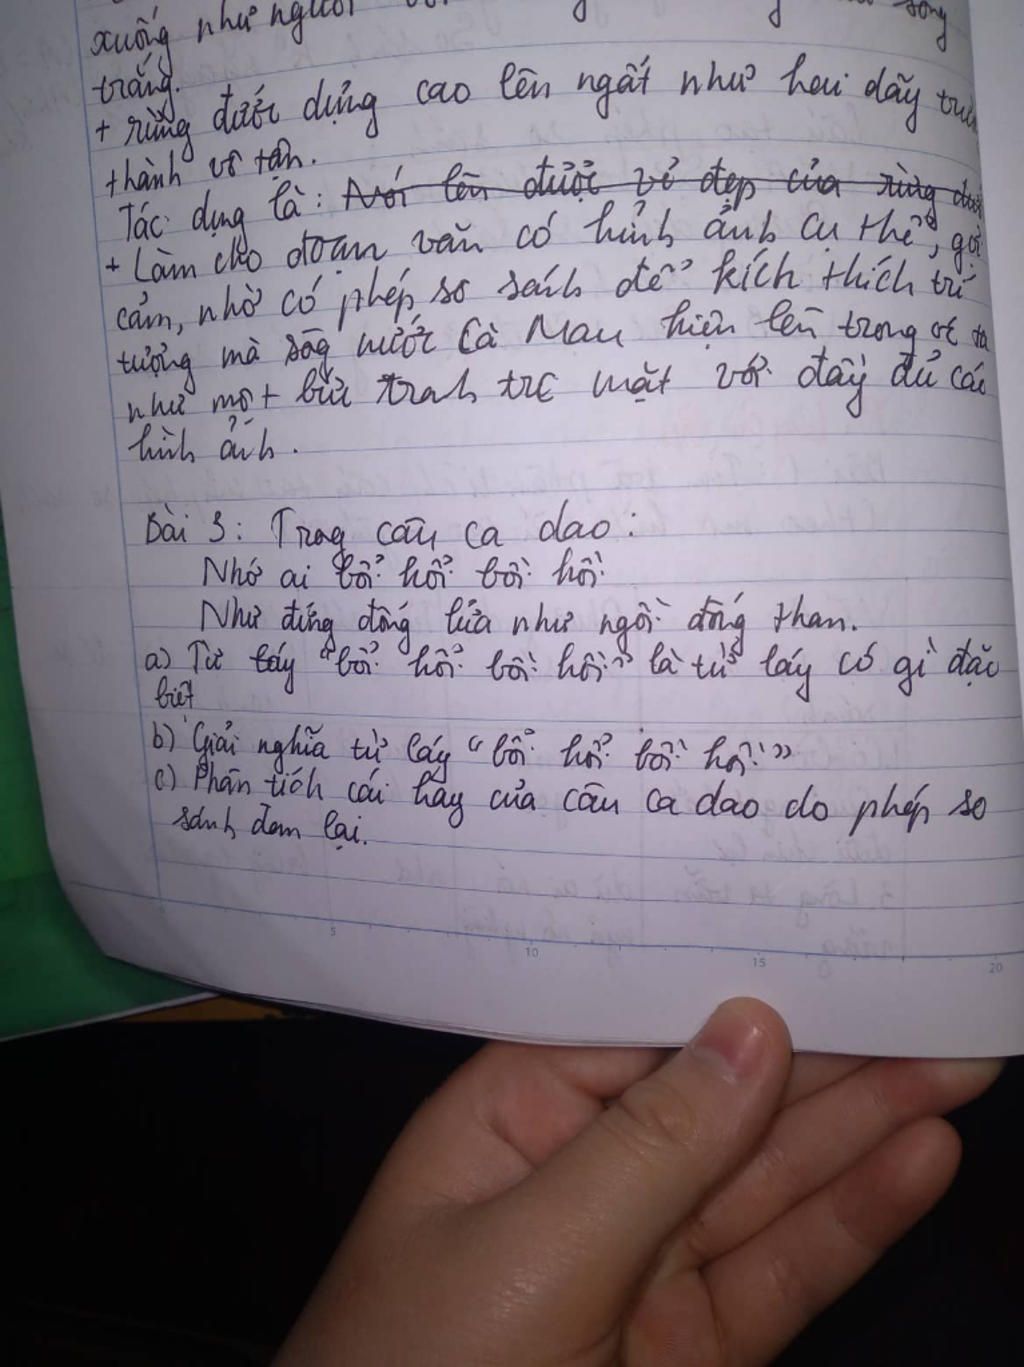 xuống như người
sóng
trắng.
+ rừng đước dựng cao lên ngất như hai dãy trườ
thành vô tận.
Tác dụng là: Nói lên được vẻ đẹp của rừng đướ
+ Làm cho đoạn văn có hình ảnh cụ thể, gợi
cảm, nhờ có phép so sánh để kích thích trí
tượng mà sôg nước Cà Mau hiện lên trong
như một bức tranh trc mặt với đầy đủ các
hình ảnh.
Bài 3: Trog câu ca dao:
Nhớ ai bổi hổi bồi hồi
Như đứng đống lửa như ngồi đống than.
a) Từ láy "bổi hổi bồi hồi" là từ láy có gì đặc
biệt
b) Giải nghĩa từ láy "bổi hổi bồi hồi"
c) Phân tích cái hay của câu ca dao do phép so
sánh đem lại.
5 10 15 20